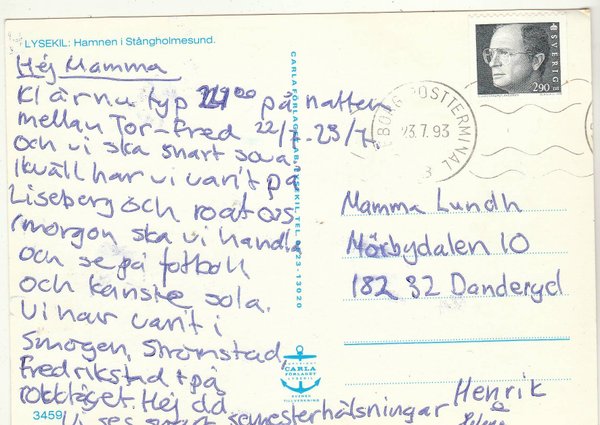 LYSEKIL: Hamnen i Stångholmesund.
Hej Mamma
Kl är nu typ 2400 på natten
mellan Tor-Fred 22/7-23/7.
och vi ska snart sova.
Ikväll har vi varit på
Liseberg och roat oss.
Imorgon ska vi handla
och se på fotboll
och kanske sola.
Vi har varit i
Smögen, Strömstad,
Fredrikstad + på
rocktåget. Hej då
Vi ses snart semesterhälsningar Henrik
3459
CARLA FÖRLAGET AB, LYSEKIL TEL. 0523-13020
CARLA
FÖRLAGET
LYSEKIL
SVENSK
TILLVERKNING
SVERIGE
290
BORG POSTTERMINAL
23.7.93
3
Mamma Lundh
Mörbydalen 10
182 32 Danderyd